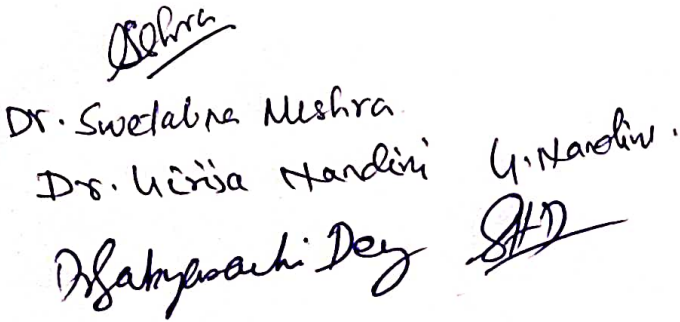 Dr. Swetabna Mishra
Dr. Girija Nandini G. Nandini.
Dr Sabyasachi Dey SHD